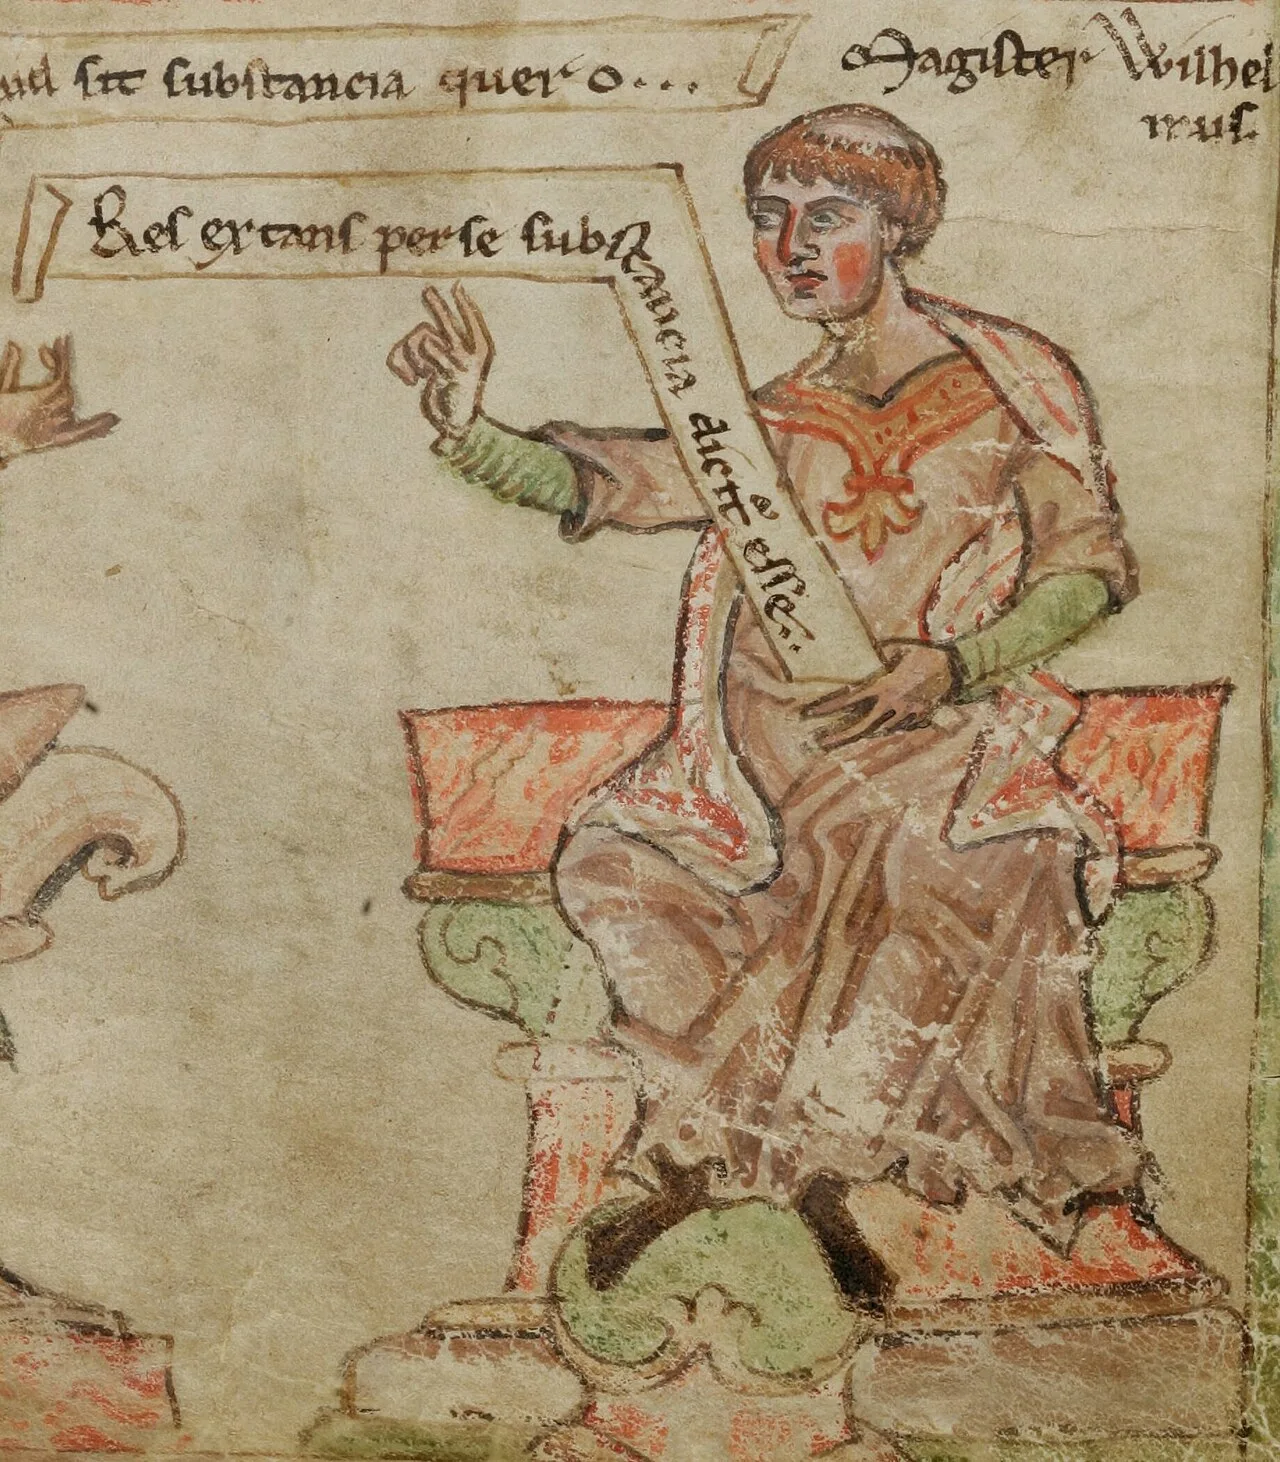 sit substancia quero...
Magister Wilhel
mus.
Res extans per se substancia dicit esse..